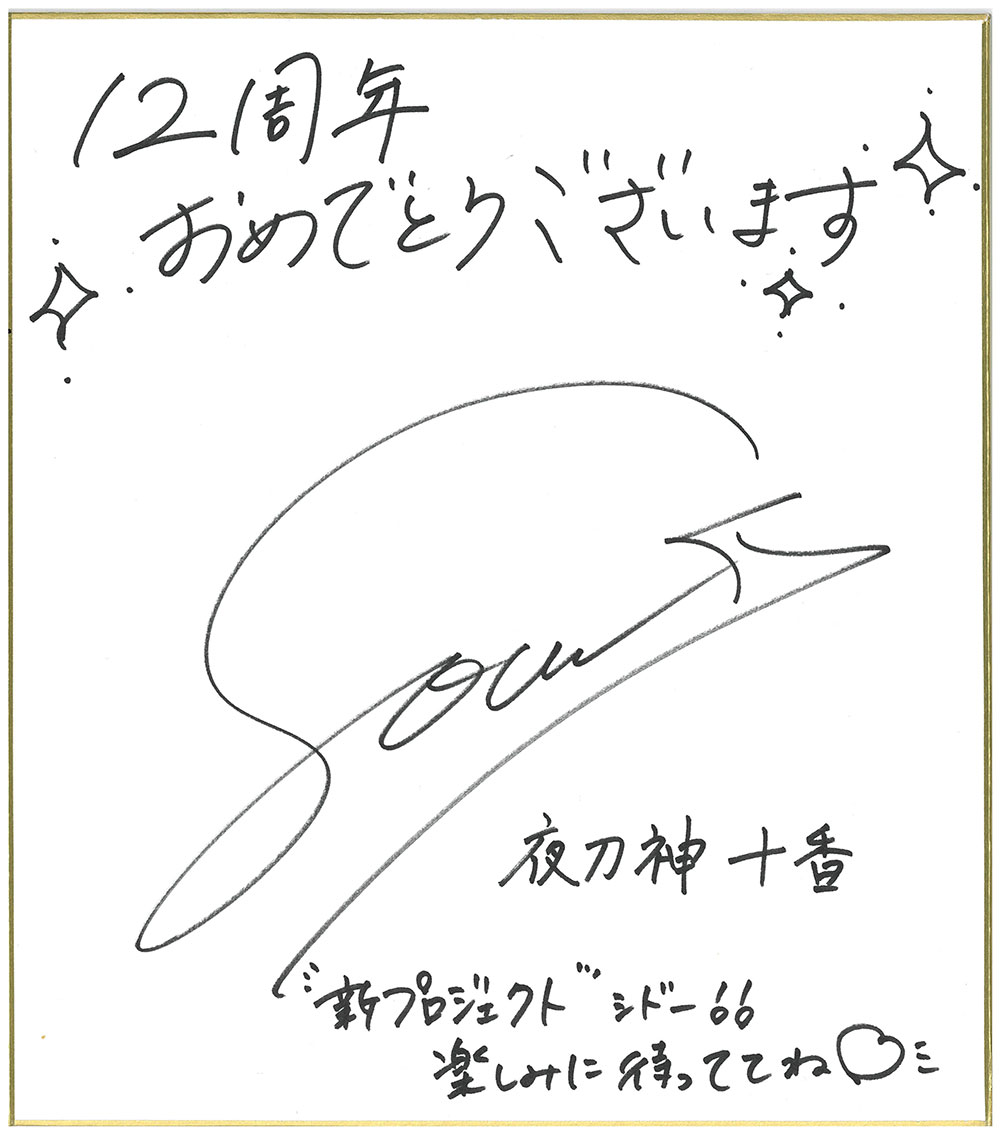 12周年
おめでとうございます
夜刀神 十香
"新プロジェクト"シドー!!
楽しみに待っててね